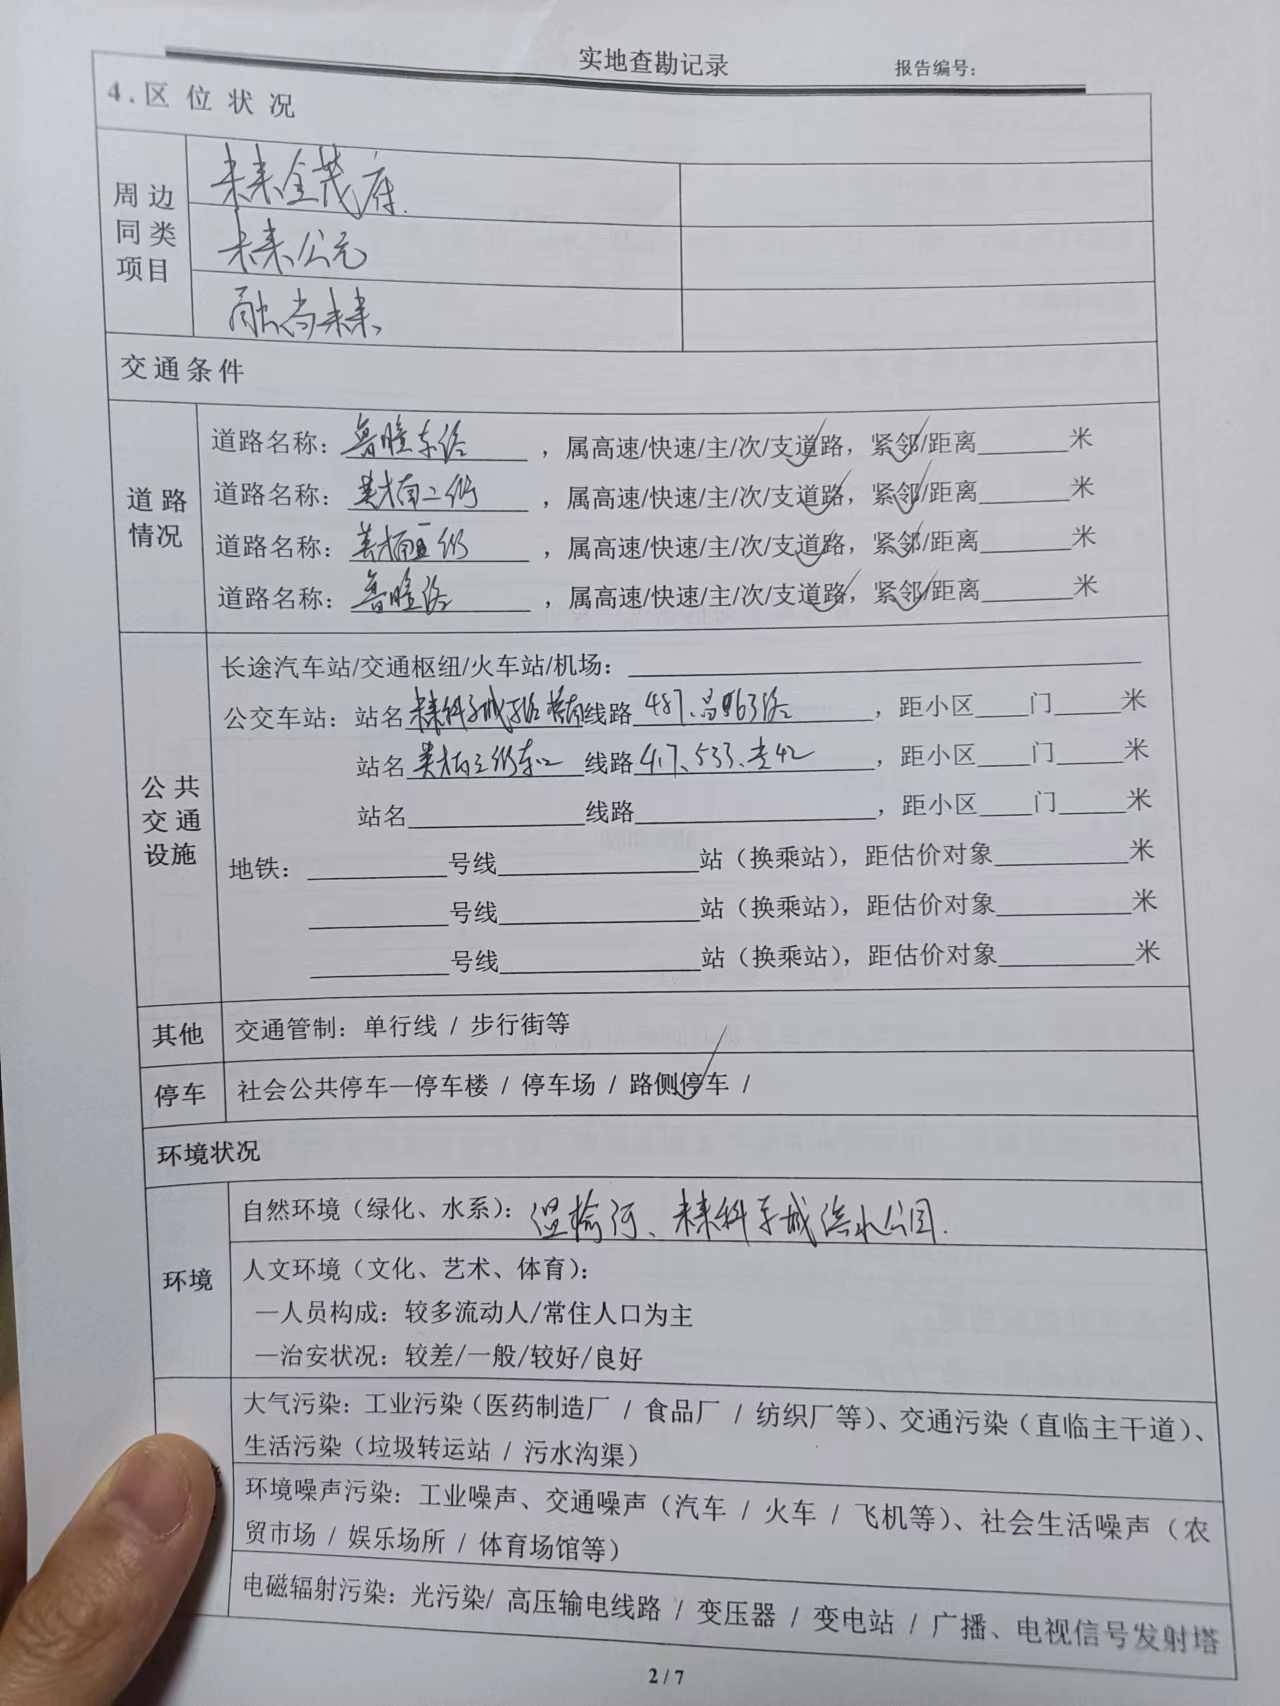 实地查勘记录
报告编号:
4.区位状况
周边同类项目
未来金茂府.
未来公元
融尚未来
交通条件
道路情况
道路名称: 鲁疃东路 ,属高速/快速/主/次/支道路,紧邻/距离______米
道路名称: 英才南二街 ,属高速/快速/主/次/支道路,紧邻/距离______米
道路名称: 英才南一街 ,属高速/快速/主/次/支道路,紧邻/距离______米
道路名称: 鲁疃路 ,属高速/快速/主/次/支道路,紧邻/距离______米
公共交通设施
长途汽车站/交通枢纽/火车站/机场:
公交车站: 站名 未来科学城路 线路 487、昌63路 ,距小区____门____米
站名 英才南三街东口 线路 417、533、专42 ,距小区____门____米
站名____________线路____________,距小区____门____米
地铁: __________号线____________站(换乘站),距估价对象________米
__________号线____________站(换乘站),距估价对象________米
__________号线____________站(换乘站),距估价对象________米
其他 交通管制: 单行线 / 步行街等
停车 社会公共停车—停车楼 / 停车场 / 路侧停车 /
环境状况
环境
自然环境(绿化、水系): 温榆河、未来科学城滨水公园.
人文环境(文化、艺术、体育):
—人员构成: 较多流动人/常住人口为主
—治安状况: 较差/一般/较好/良好
大气污染: 工业污染(医药制造厂 / 食品厂 / 纺织厂等)、交通污染(直临主干道)、
生活污染(垃圾转运站 / 污水沟渠)
环境噪声污染: 工业噪声、交通噪声(汽车 / 火车 / 飞机等)、社会生活噪声(农
贸市场 / 娱乐场所 / 体育场馆等)
电磁辐射污染: 光污染/ 高压输电线路 / 变压器 / 变电站 / 广播、电视信号发射塔
2/7